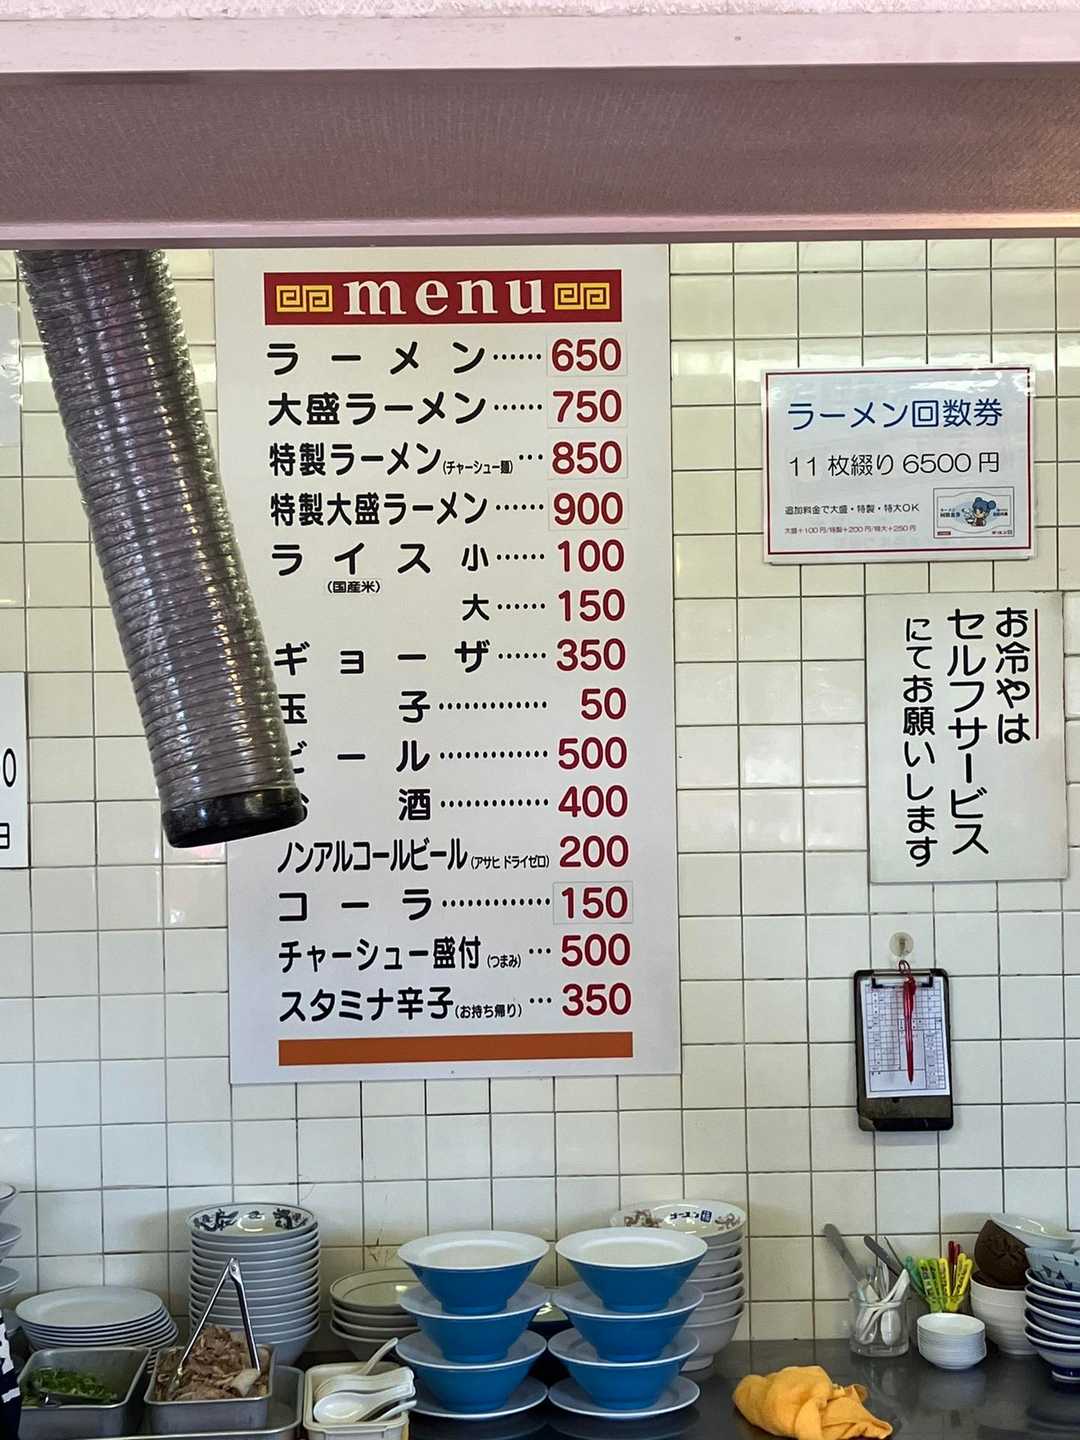 menu
ラーメン……650
大盛ラーメン……750
特製ラーメン(チャーシュー麺)…850
特製大盛ラーメン……900
ライス 小……100
(国産米)
大……150
ギョーザ……350
玉子…………50
ビール…………500
酒…………400
ノンアルコールビール(アサヒ ドライゼロ) 200
コーラ…………150
チャーシュー盛付(つまみ)…500
スタミナ辛子(お持ち帰り)…350
ラーメン回数券
11枚綴り6500円
追加料金で大盛・特製・特大OK
大盛+100円/特製+200円/特大+250円
お冷やは
セルフサービス
にてお願いします